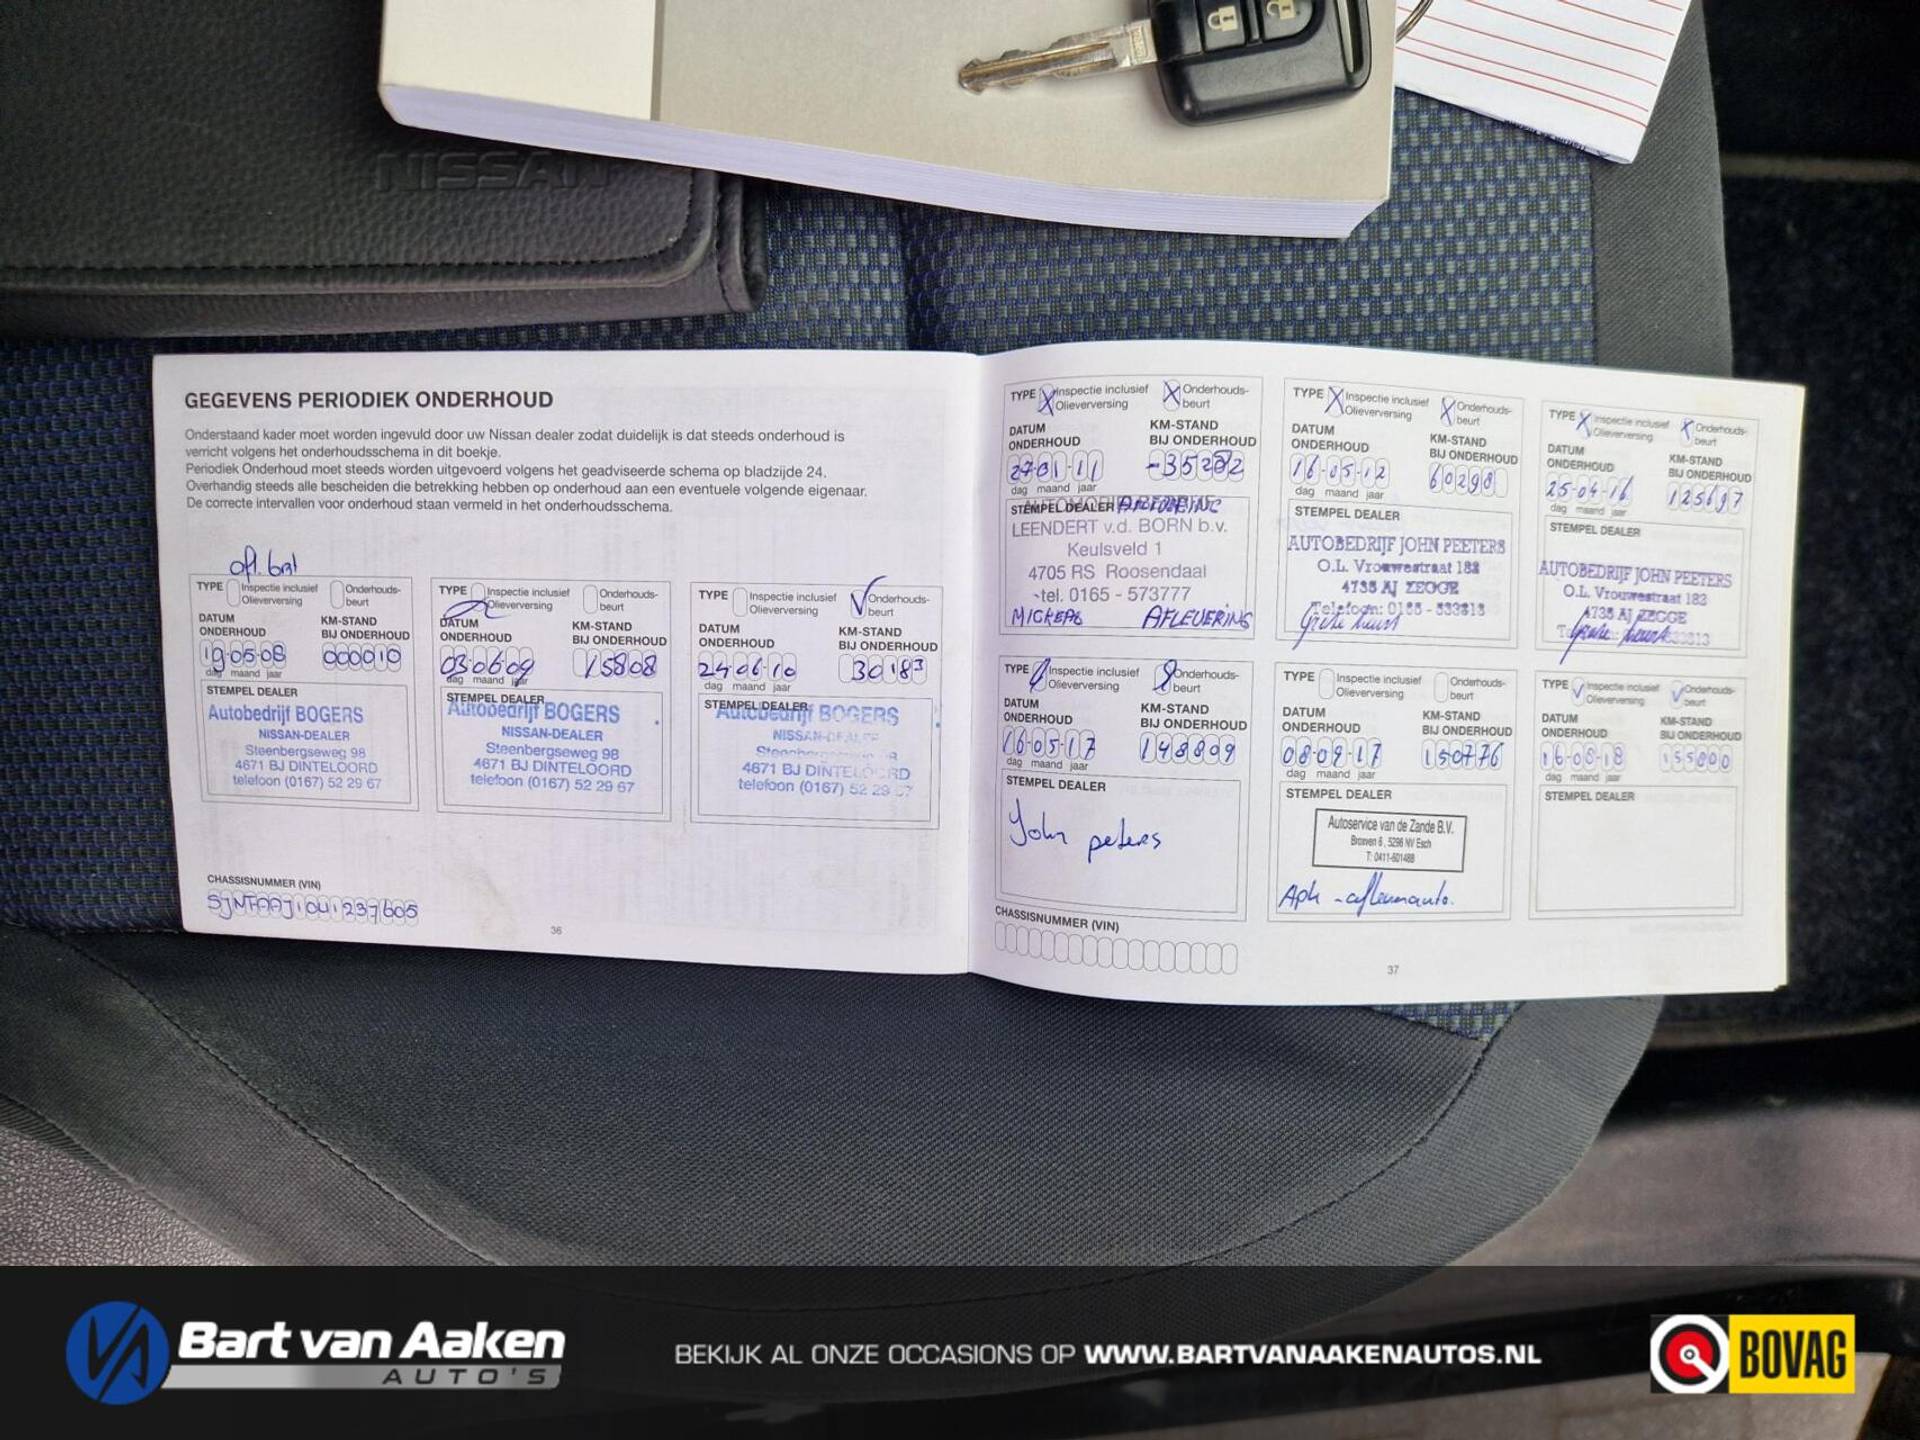 NISSAN
GEGEVENS PERIODIEK ONDERHOUD
Onderstaand kader moet worden ingevuld door uw Nissan dealer zodat duidelijk is dat steeds onderhoud is
verricht volgens het onderhoudsschema in dit boekje.
Periodiek Onderhoud moet steeds worden uitgevoerd volgens het geadviseerde schema op bladzijde 24.
Overhandig steeds alle bescheiden die betrekking hebben op onderhoud aan een eventuele volgende eigenaar.
De correcte intervallen voor onderhoud staan vermeld in het onderhoudsschema.
TYPE Inspectie inclusief Olieverversing Onderhouds-beurt
DATUM ONDERHOUD KM-STAND BIJ ONDERHOUD
19-05-08 000010
dag maand jaar
STEMPEL DEALER
Autobedrijf BOGERS
NISSAN-DEALER
Steenbergseweg 98
4671 BJ DINTELOORD
telefoon (0167) 52 29 67
TYPE Inspectie inclusief Olieverversing Onderhouds-beurt
DATUM ONDERHOUD KM-STAND BIJ ONDERHOUD
03-06-09 15808
dag maand jaar
STEMPEL DEALER
Autobedrijf BOGERS
NISSAN-DEALER
Steenbergseweg 98
4671 BJ DINTELOORD
telefoon (0167) 52 29 67
TYPE Inspectie inclusief Olieverversing Onderhouds-beurt
DATUM ONDERHOUD KM-STAND BIJ ONDERHOUD
24-06-10 30183
dag maand jaar
STEMPEL DEALER
Autobedrijf BOGERS
NISSAN-DEALER
4671 BJ DINTELOORD
telefoon (0167) 52 29 67
CHASSISNUMMER (VIN)
36
TYPE Inspectie inclusief Olieverversing Onderhouds-beurt
DATUM ONDERHOUD KM-STAND BIJ ONDERHOUD
27-01-11 -35282
dag maand jaar
STEMPEL DEALER
LEENDERT v.d. BORN b.v.
Keulsveld 1
4705 RS Roosendaal
tel. 0165 - 573777
AFLEVERING
TYPE Inspectie inclusief Olieverversing Onderhouds-beurt
DATUM ONDERHOUD KM-STAND BIJ ONDERHOUD
16-05-12 60298
dag maand jaar
STEMPEL DEALER
AUTOBEDRIJF JOHN PEETERS
O.L. Vrouwestraat 182
4735 AJ ZEGGE
Telefoon: 0165 - 533813
TYPE Inspectie inclusief Olieverversing Onderhouds-beurt
DATUM ONDERHOUD KM-STAND BIJ ONDERHOUD
25-04-16 125697
dag maand jaar
STEMPEL DEALER
AUTOBEDRIJF JOHN PEETERS
O.L. Vrouwestraat 182
4735 AJ ZEGGE
TYPE Inspectie inclusief Olieverversing Onderhouds-beurt
DATUM ONDERHOUD KM-STAND BIJ ONDERHOUD
16-05-17 148809
dag maand jaar
STEMPEL DEALER
John peters
TYPE Inspectie inclusief Olieverversing Onderhouds-beurt
DATUM ONDERHOUD KM-STAND BIJ ONDERHOUD
08-09-17 150776
dag maand jaar
STEMPEL DEALER
Autoservice van de Zande B.V.
5296 NV Esch
T: 0411-601488
TYPE Inspectie inclusief Olieverversing Onderhouds-beurt
DATUM ONDERHOUD KM-STAND BIJ ONDERHOUD
16-08-18 155800
dag maand jaar
STEMPEL DEALER
CHASSISNUMMER (VIN)
37
Bart van Aaken
AUTO'S
BEKIJK AL ONZE OCCASIONS OP WWW.BARTVANAAKENAUTOS.NL
BOVAG